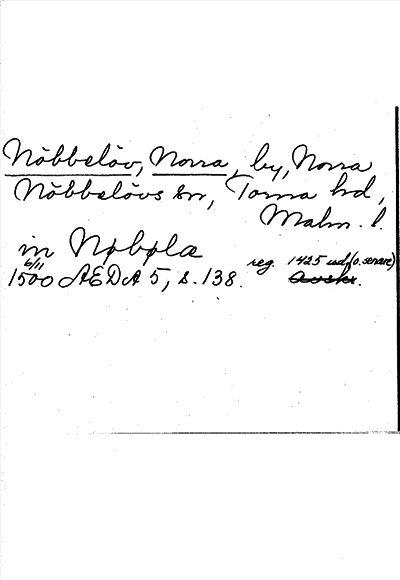 Nöbbelöv, Norra, by, Norra
Nöbbelövs sn, Torna hd,
Malm. l.
in Nøbølæ
6/11
1500 AEDA 5, s. 138. reg. 1425 ud. (o. senare)
Avskr.